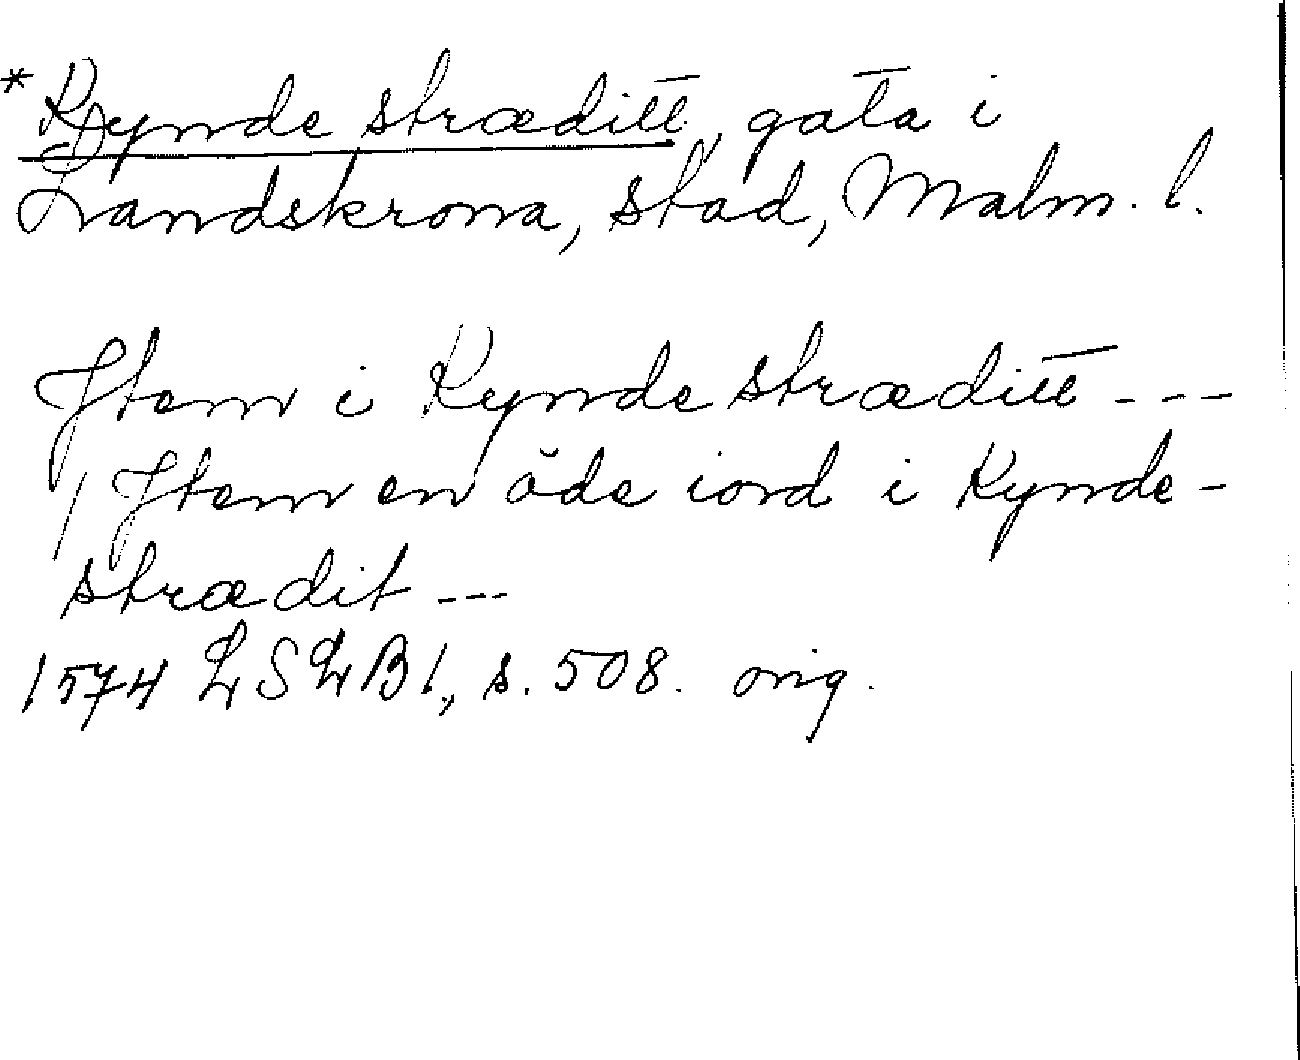 *Kynde stræditt, gata i
Landskrona, stad, Malm. l.
Jtem i Kynde stræditt ---
/ Jtem en öde iord i Kynde-
strædit ---
1574 LSLB 1, s. 508. orig.